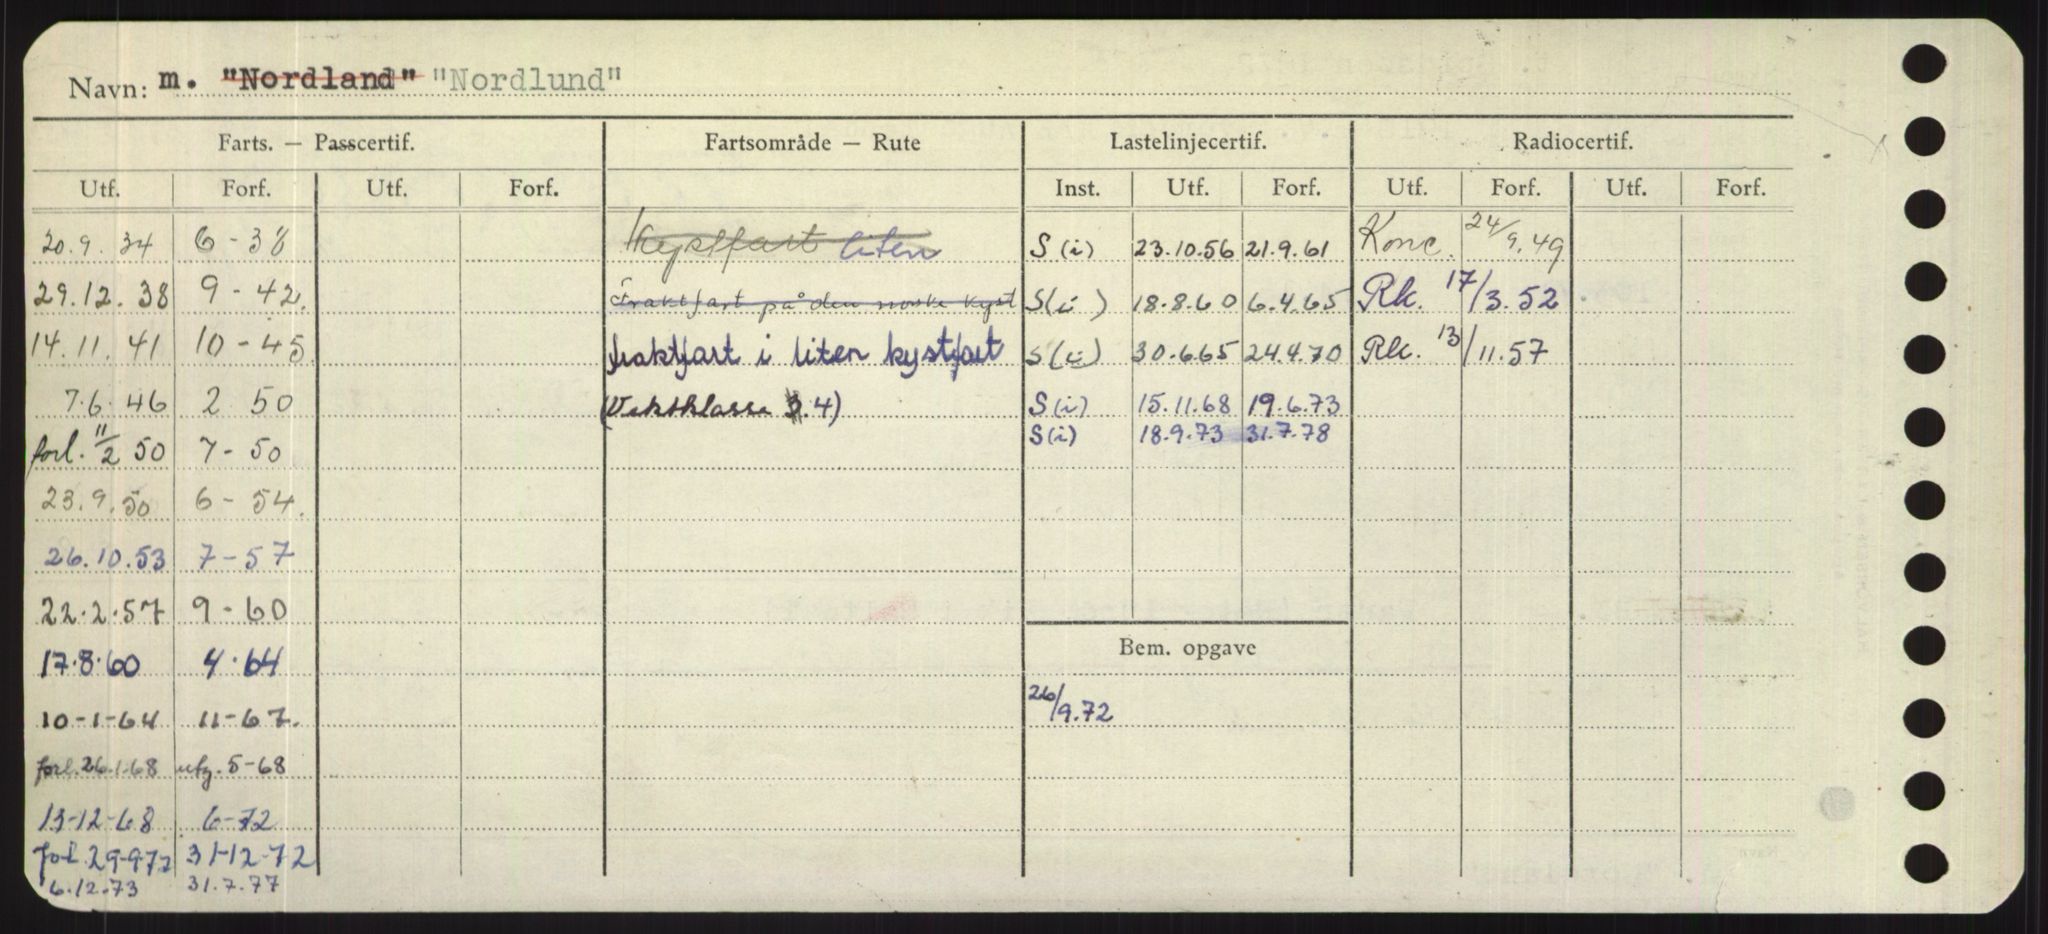 Navn: m. "Nordland" "Nordlund"
Farts. — Passcertif. Fartsområde — Rute Lastelinjecertif. Radiocertif.
Utf. Forf. Utf. Forf. Inst. Utf. Forf. Utf. Forf. Utf. Forf.
20.9.34 6-38 Kystfart liten S(i) 23.10.56 21.9.61 Konc. 24/9.49
29.12.38 9-42. Fraktfart på den norske kyst S(i) 18.8.60 6.4.65 Rk. 17/3.52
14.11.41 10-45 fraktfart i liten kystfart S(i) 30.6.65 24.4.70 Rk. 13/11.57
7.6.46 2 50 (Vektklasse 4) S(i) 15.11.68 19.6.73
S(i) 18.9.73 31.7.78
forl. 11/2 50 7-50
23.9.50 6-54.
26.10.53 7-57
22.2.57 9-60
Bem. opgave
17.8.60 4.64
26/9.72
10-1-64 11-67.
forl. 26.1.68 utg. 5-68
13-12-68 6-72
forl. 29-9-72 31-12-72
6.12.73 31.7.77